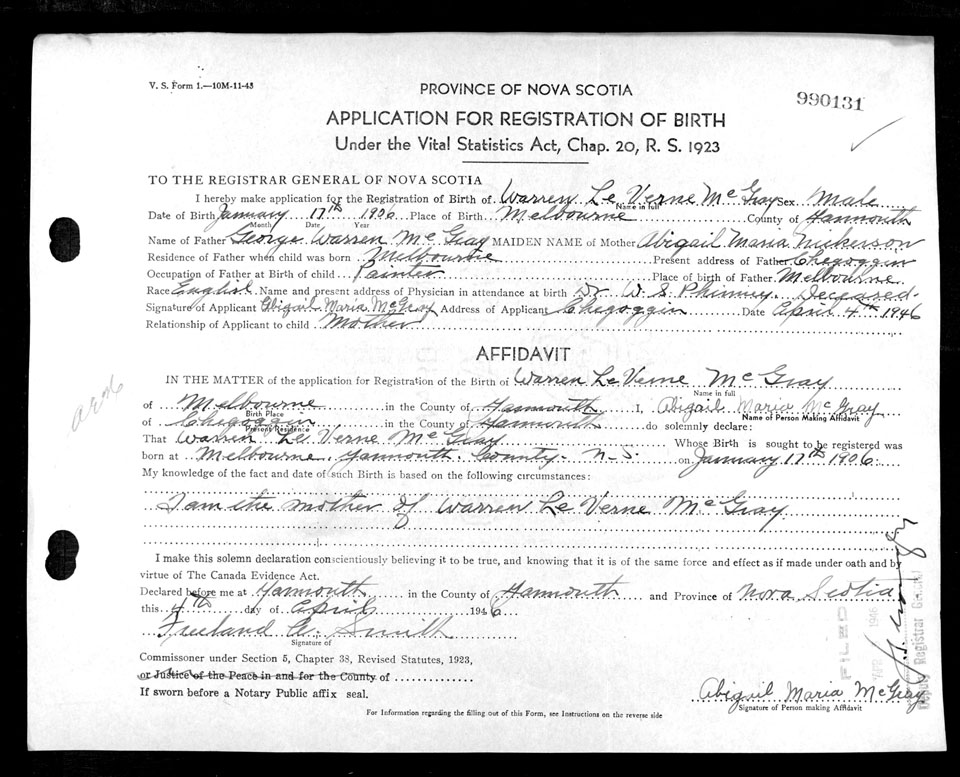 V. S. Form 1.—10M-11-43
PROVINCE OF NOVA SCOTIA
990131
APPLICATION FOR REGISTRATION OF BIRTH
Under the Vital Statistics Act, Chap. 20, R. S. 1923
TO THE REGISTRAR GENERAL OF NOVA SCOTIA
I hereby make application for the Registration of Birth of Warren Le Verne McGray Sex Male
Name in full
Date of Birth January 17th 1906 Place of Birth Melbourne County of Yarmouth
Month Date Year
Name of Father George Warren McGray MAIDEN NAME of Mother Abigail Maria Nickerson
Residence of Father when child was born Melbourne Present address of Father Chegoggin
Occupation of Father at Birth of child Painter Place of birth of Father Melbourne
Race English Name and present address of Physician in attendance at birth Dr W. S. Phinney. Deceased.
Signature of Applicant Abigail Maria McGray Address of Applicant Chegoggin Date April 4th 1946
Relationship of Applicant to child Mother
AFFIDAVIT
IN THE MATTER of the application for Registration of the Birth of Warren Le Verne McGray
Name in full
of Melbourne in the County of Yarmouth I, Abigail Maria McGray
Birth Place Name of Person Making Affidavit
of Chegoggin in the County of Yarmouth do solemnly declare:
Present Residence
That Warren Le Verne McGray Whose Birth is sought to be registered was
born at Melbourne, Yarmouth County. N.S. on January 17th 1906.
My knowledge of the fact and date of such Birth is based on the following circumstances:
I am the mother of Warren Le Verne McGray
I make this solemn declaration conscientiously believing it to be true, and knowing that it is of the same force and effect as if made under oath and by
virtue of The Canada Evidence Act.
Declared before me at Yarmouth in the County of Yarmouth and Province of Nova Scotia
this 4th day of April 1946
Freeland A. Smith
Signature of
Commissioner under Section 5, Chapter 38, Revised Statutes, 1923,
or Justice of the Peace in and for the County of
If sworn before a Notary Public affix seal.
Abigail Maria McGray
Signature of Person making Affidavit
For Information regarding the filling out of this Form, see Instructions on the reverse side
FILED
1946
Deputy Registrar General